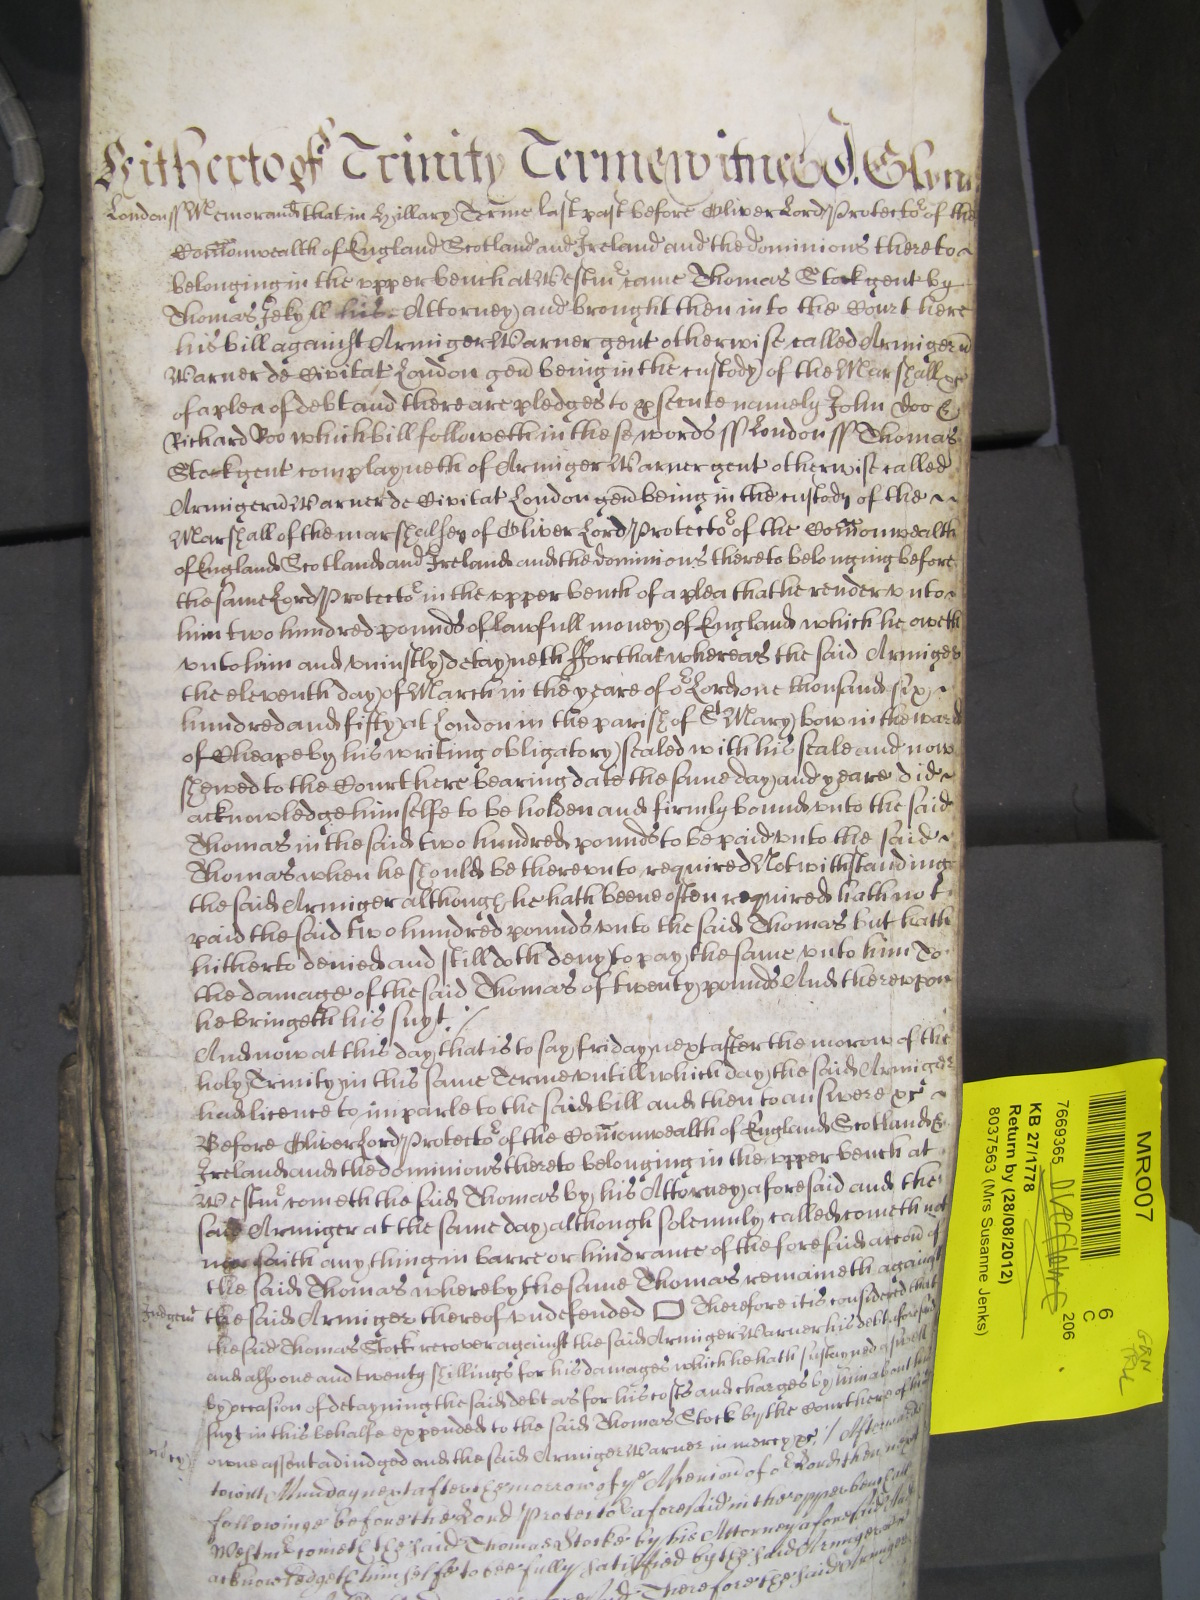 Hitherto of Trinity Terme witnes J. Glynn
London ss Memorand that in Hillary Terme last past before Oliver Lord Protector of the
Comonwealth of England Scotland and Ireland and the dominions thereto
belonging in the upper bench at Westmr came Thomas Stock gent by
Thomas Jekyll his Attorney and brought then into the Court here
his bill against Armiger Warner gent otherwise called Armigerū
Warner de Civitat London gen being in the custody of the Marshall &c
of a plea of debt and there are pledges to psecute namely John Doo &
Richard Roo which bill followeth in these words ss London ss Thomas
Stock gent complayneth of Armiger Warner gent otherwise called
Armigerū Warner de Civitat London gen being in the custody of the
Marshall of the marshalsey of Oliver Lord Protector of the Comonwealth
of England Scotland and Ireland and the dominions thereto belonging before
the same Lord Protector in the upper bench of a plea that he render unto
him two hundred pounds of lawfull money of England which he oweth
unto him and uniustly detayneth ffor that whereas the said Armiger
the eleventh day of March in the yeare of or Lord one thousand six
hundred and fifty at London in the parish of St Mary bow in the ward
of Cheape by his writing obligatory sealed with his seale and now
shewed to the Court here bearing date the same day and yeare did
acknowledge himselfe to be holden and firmly bound unto the said
Thomas in the said two hundred pounds to be paid unto the said
Thomas when he should be thereunto required Notwithstanding
the said Armiger although he hath beene often required hath not
paid the said two hundred pounds unto the said Thomas but hath
hitherto denied and still doth deny to pay the same unto him To
the damage of the said Thomas of twenty pounds And thereupon
he bringeth his suyt
And now at this day that is to say friday next after the morow of the
holy Trinity in this same Terme untill which day the said Armiger
had licence to imparle to the said bill and then to answere &c
Before Oliver Lord Protector of the Comonwealth of England Scotland &
Ireland and the dominions thereto belonging in the upper bench at
Westmr cometh the said Thomas by his Attorney aforesaid and the
said Armiger at the same day although solemnly called cometh not
nor saith any thing in barre or hindrance of the foresaid accon of
the said Thomas whereby the same Thomas remaineth against
Judgemt the said Armiger thereof undefended Therefore it is considered that
the said Thomas Stock recover against the said Armiger Warner his debt aforesaid
and also one and twenty shillings for his damages which he hath sustayned aswell
by occasion of detayning the said debt as for his costs and charges by him about his
suyt in this behalfe expended to the said Thomas Stock by the Court here of his
mercy owne assent adiudged and the said Armiger Warner in mercy &c Afterwards
towit Munday next after the morrow of ye Asencion of or Lord then next
followinge before the Lord Protector aforesaid in the upper bench att
Westmr cometh the said Thomas Stocke by his Attorney aforesaid And
acknowledgeth himselfe to bee fully satisfied by the said Armiger
Therefore the said Armiger
MR007
6
C
206
7669365
KB 27/1778
Return by (28/08/2012)
8037563 (Mrs Susanne Jenks)